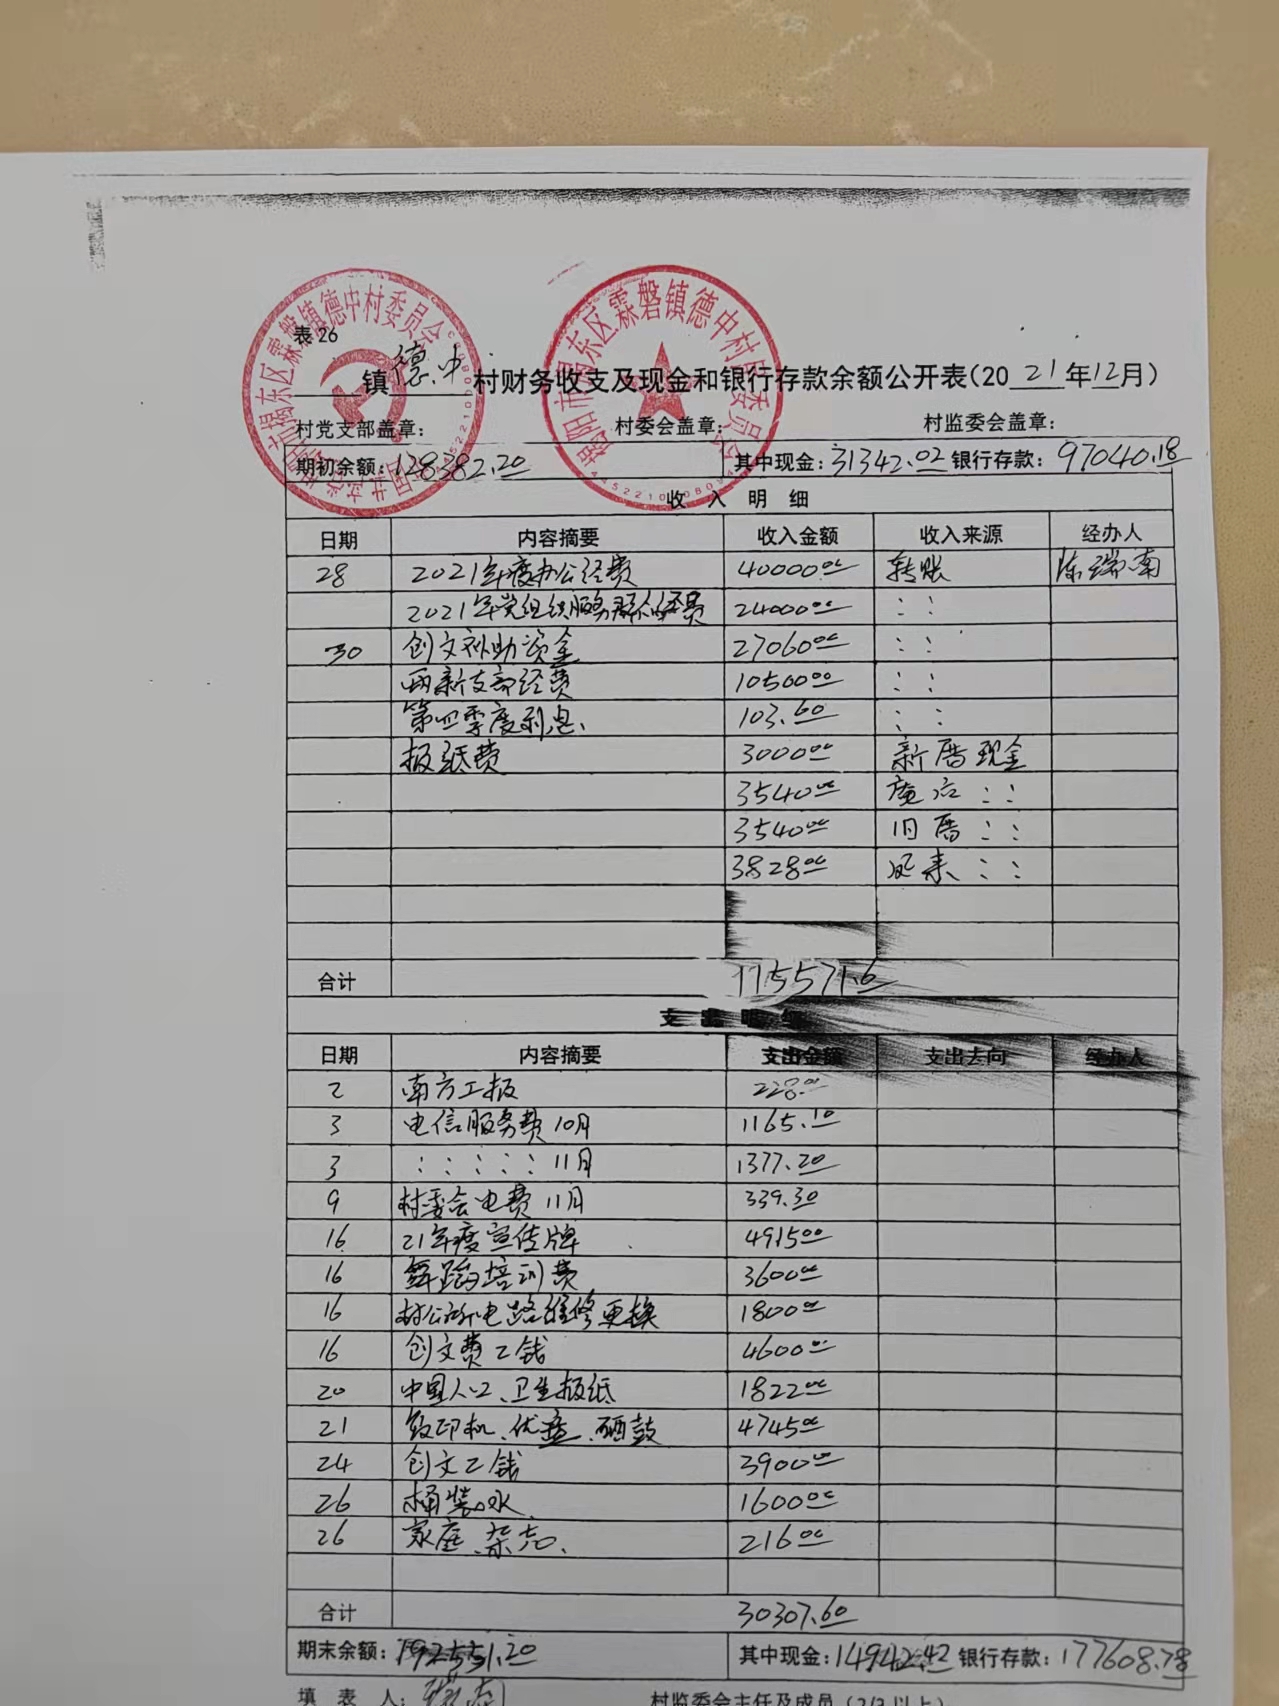 表26
镇 德中 村财务收支及现金和银行存款余额公开表(2021年12月)
村党支部盖章: 村委会盖章: 村监委会盖章:
期初余额:128382.20 其中现金:31342.02 银行存款:97040.18
收 入 明 细
日期 内容摘要 收入金额 收入来源 经办人
28 2021年度办公经费 40000.00 转账 陈瑞南
2021年党组织服务群众经费 24000.00 : :
30 创文补助资金 27060.00 : :
两新支部经费 10500.00 : :
第四季度利息 103.60 : :
报纸费 3000.00 新厝现金
3540.00 : :
3540.00 旧厝 : :
3828.00 : :
合计 115571.6
支 出 明 细
日期 内容摘要 支出金额 支出去向 经办人
2 南方工报 228.00
3 电信服务费10月 1165.10
3 : : : : : 11月 1377.20
9 村委会电费11月 339.30
16 21年度宣传牌 4915.00
16 舞蹈培训费 3600.00
16 村公所电路维修更换 1800.00
16 创文费工钱 4600.00
20 中国人口、卫生报纸 1822.00
21 复印机、优盘、硒鼓 4745.00
24 创文工钱 3900.00
26 桶装水 1600.00
26 家庭、杂志、 216.00
合计 30307.60
期末余额:192551.20 其中现金:14942.42 银行存款:177608.78
填 表 人: 瑞南 村监委会主任及成员(2/3以上)
揭东区霖磐镇德中村委员会
揭阳市揭东区霖磐镇德中村民委员会